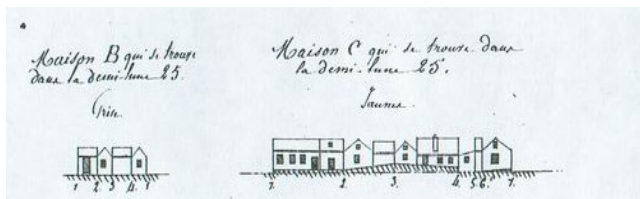 Maison B qui se trouve
dans la demi-lune 25.
Grise.
1 2. 3 4. 1
Maison C qui se trouve dans
la demi-lune 25.
Jaune.
1. 2. 3. 4. 5. 6. 7.